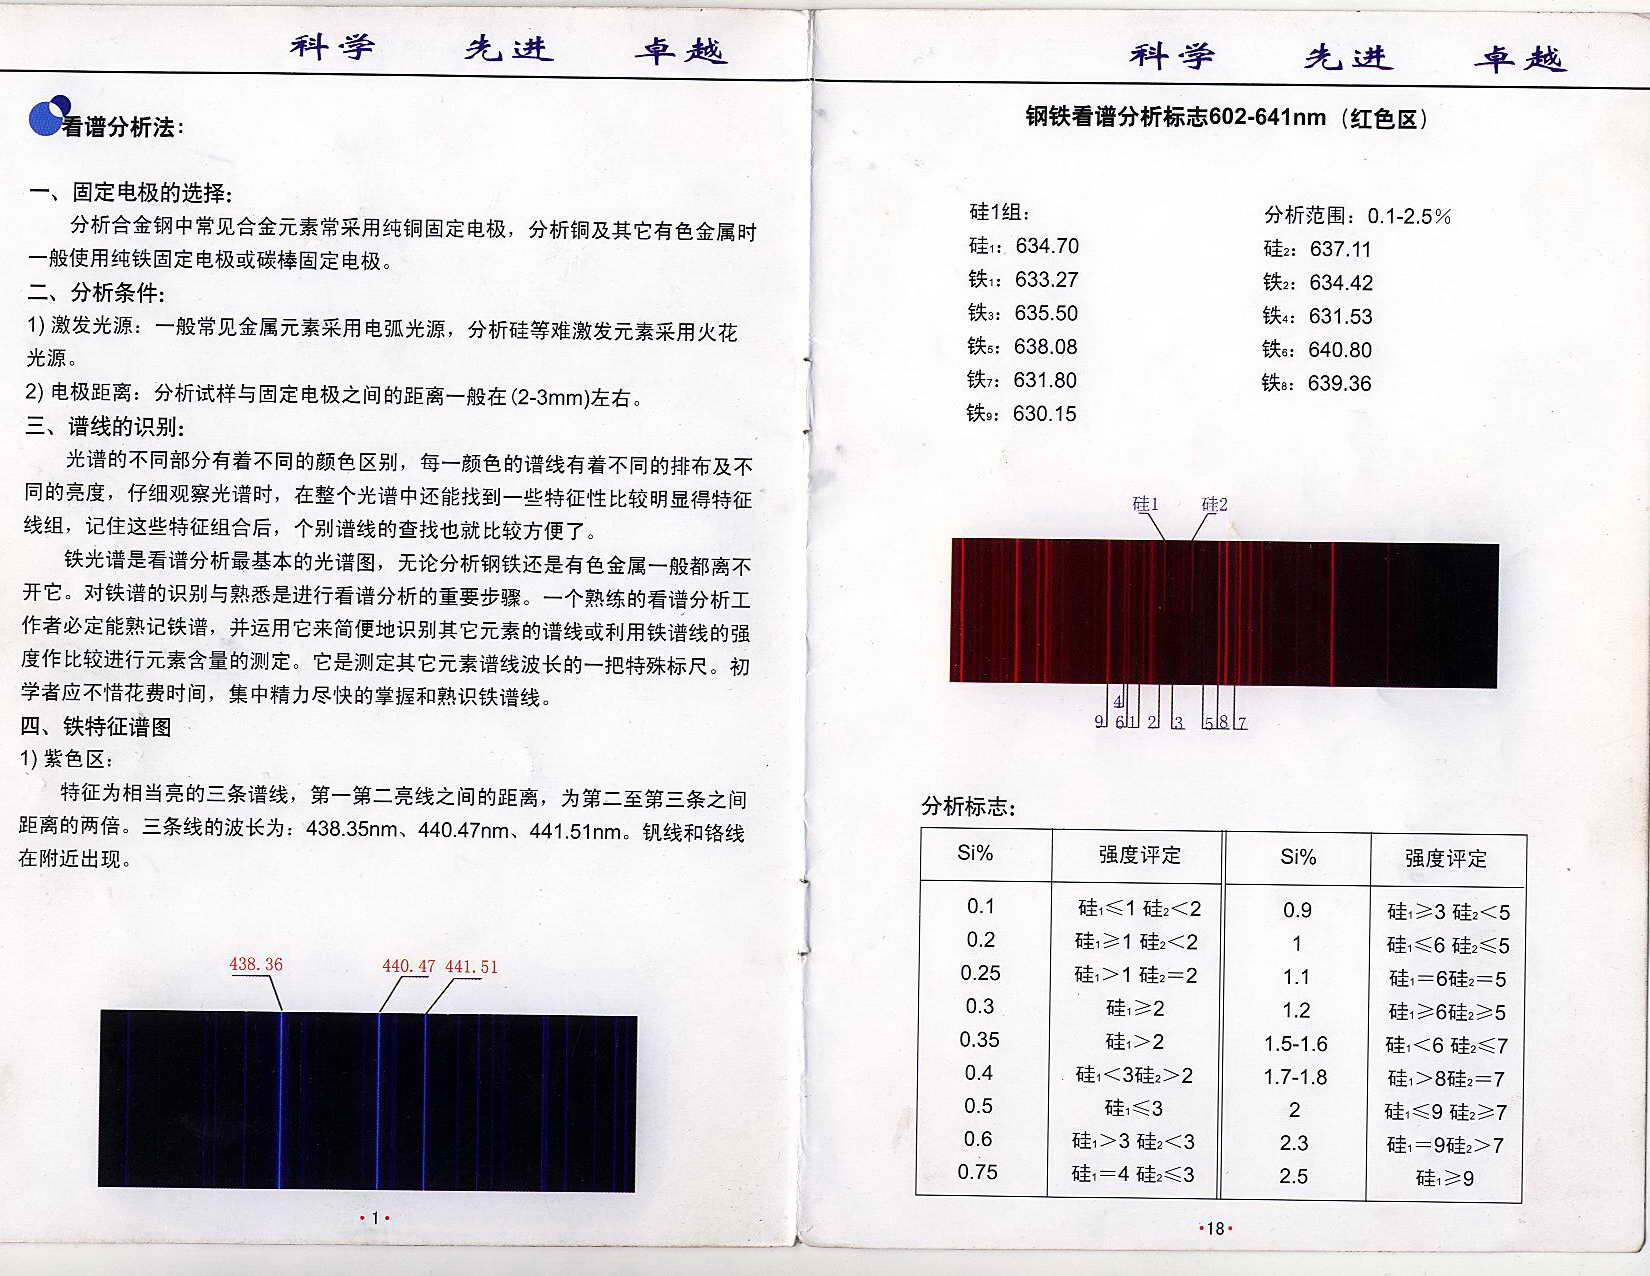 科学 先进 卓越
看谱分析法：
一、固定电极的选择：
分析合金钢中常见合金元素常采用纯铜固定电极，分析铜及其它有色金属时
一般使用纯铁固定电极或碳棒固定电极。
二、分析条件：
1) 激发光源：一般常见金属元素采用电弧光源，分析硅等难激发元素采用火花
光源。
2) 电极距离：分析试样与固定电极之间的距离一般在(2-3mm)左右。
三、谱线的识别：
光谱的不同部分有着不同的颜色区别，每一颜色的谱线有着不同的排布及不
同的亮度，仔细观察光谱时，在整个光谱中还能找到一些特征性比较明显得特征
线组，记住这些特征组合后，个别谱线的查找也就比较方便了。
铁光谱是看谱分析最基本的光谱图，无论分析钢铁还是有色金属一般都离不
开它。对铁谱的识别与熟悉是进行看谱分析的重要步骤。一个熟练的看谱分析工
作者必定能熟记铁谱，并运用它来简便地识别其它元素的谱线或利用铁谱线的强
度作比较进行元素含量的测定。它是测定其它元素谱线波长的一把特殊标尺。初
学者应不惜花费时间，集中精力尽快的掌握和熟识铁谱线。
四、铁特征谱图
1) 紫色区：
特征为相当亮的三条谱线，第一第二亮线之间的距离，为第二至第三条之间
距离的两倍。三条线的波长为：438.35nm、440.47nm、441.51nm。钒线和铬线
在附近出现。
438.36 440.47 441.51
·1·
科学 先进 卓越
钢铁看谱分析标志602-641nm（红色区）
硅1组： 分析范围：0.1-2.5%
硅₁：634.70 硅₂：637.11
铁₁：633.27 铁₂：634.42
铁₃：635.50 铁₄：631.53
铁₅：638.08 铁₆：640.80
铁₇：631.80 铁₈：639.36
铁₉：630.15
硅1 硅2
4
9 6 1 2 3 5 8 7
分析标志：
Si% 强度评定 Si% 强度评定
0.1 硅₁≤1 硅₂<2 0.9 硅₁≥3 硅₂<5
0.2 硅₁≥1 硅₂<2 1 硅₁≤6 硅₂≤5
0.25 硅₁>1 硅₂=2 1.1 硅₁=6硅₂=5
0.3 硅₁≥2 1.2 硅₁≥6硅₂≥5
0.35 硅₁>2 1.5-1.6 硅₁<6 硅₂≤7
0.4 硅₁<3硅₂>2 1.7-1.8 硅₁>8硅₂=7
0.5 硅₁≤3 2 硅₁≤9 硅₂≥7
0.6 硅₁>3 硅₂<3 2.3 硅₁=9硅₂>7
0.75 硅₁=4 硅₂≤3 2.5 硅₁≥9
·18·